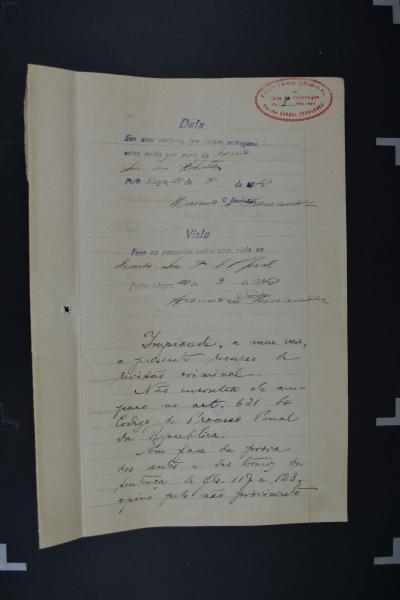 ESCRIVANIA CRIMINAL
Data
Em meu cartorio, me foram entregues
estes autos por parte do
Porto Alegre, de 3 de 1943
O Escrivão
Vista
Faço os presentes autos com vista ao
Porto Alegre, de 3 de 1943
O Escrivão
Improcede, a meu ver,
o presente recurso de
revisão criminal.
Não encontra ele am-
paro no art. 621 do
Codigo de Processo Penal
da Republica.
Em face da prova
dos autos e dos termos da
sentença de fls. 117 a 123,
opino pelo não provimento